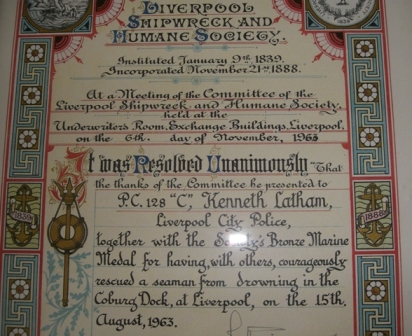 Liverpool
Shipwreck and
Humane Society.
Instituted January 9th 1839.
Incorporated November 21st 1888.
At a Meeting of the Committee of the
Liverpool Shipwreck and Humane Society,
held at the
Underwriters Room, Exchange Buildings, Liverpool,
on the 6th. day of November, 1963
It was Resolved Unanimously "That
the thanks of the Committee be presented to
P.C. 128 "C", Kenneth Latham,
Liverpool City Police,
together with the Society's Bronze Marine
Medal for having, with others, courageously
rescued a seaman from drowning in the
Coburg Dock, at Liverpool, on the 15th.
August, 1963.
1839
1888